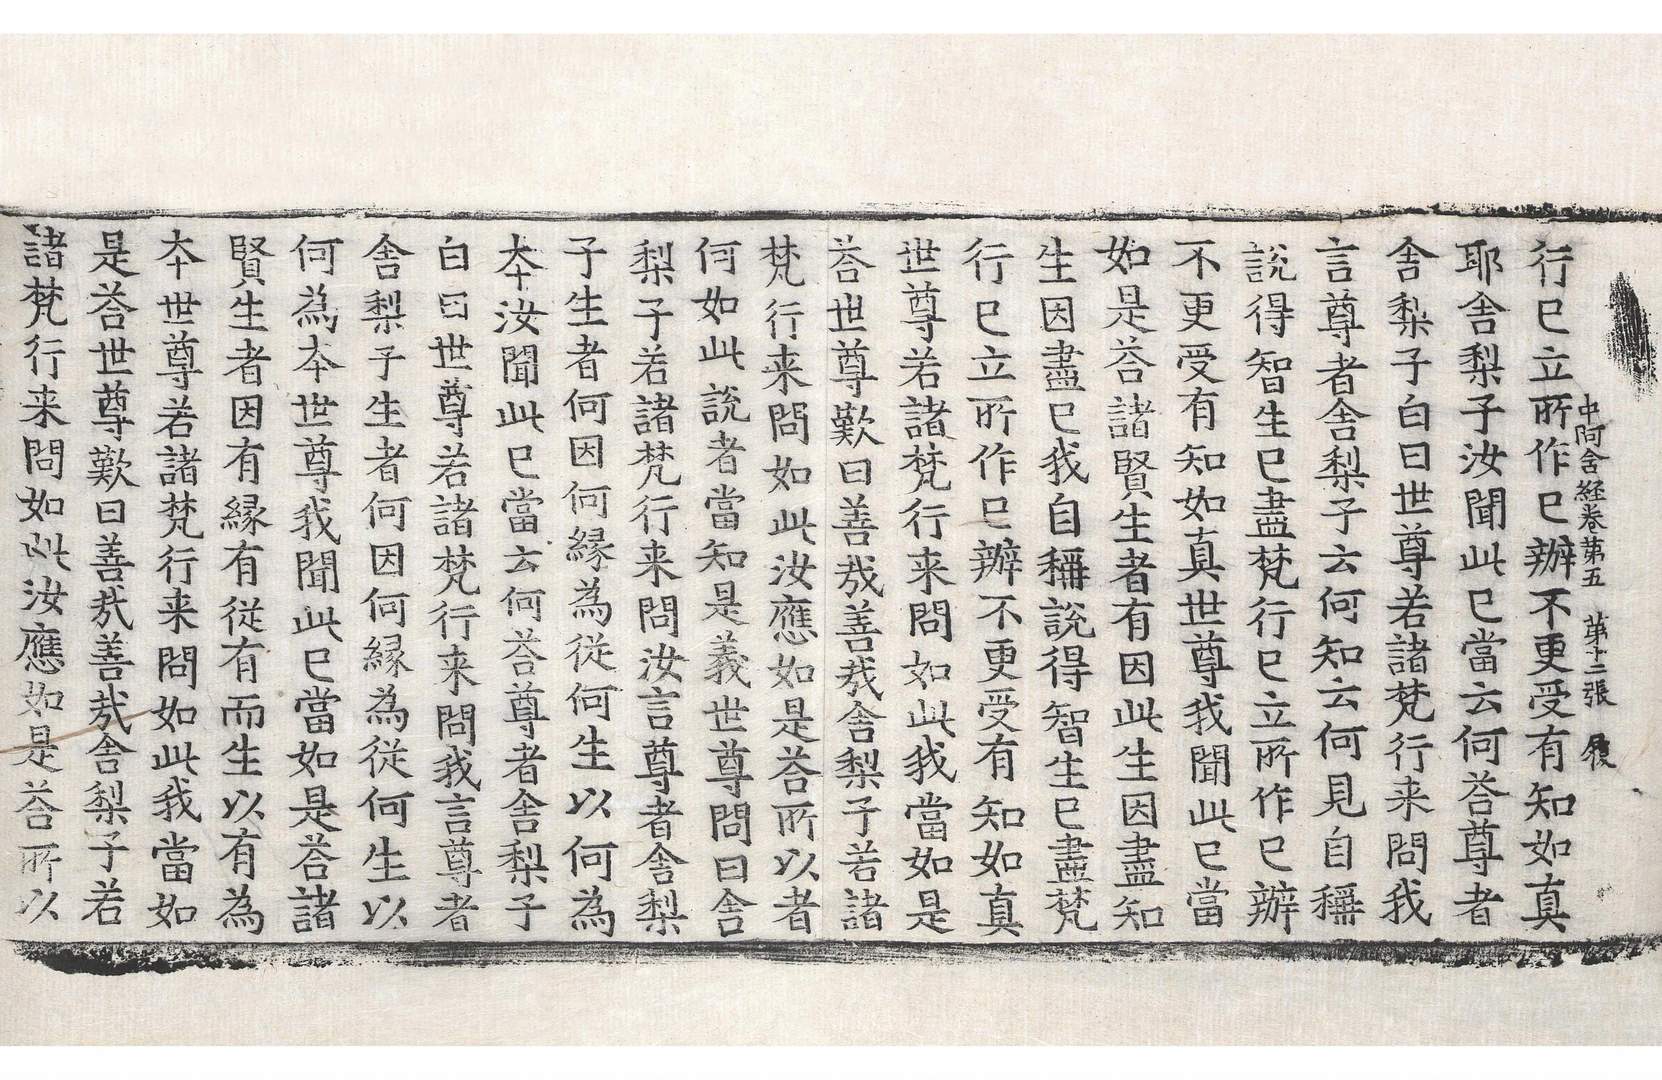 中阿含経卷第五　第十二張　履
行已立所作已辦不更受有知如真
耶舍梨子汝聞此已當云何荅尊者
舍梨子白曰世尊若諸梵行来問我
言尊者舍梨子云何知云何見自稱
說得智生已盡梵行已立所作已辦
不更受有知如真世尊我聞此已當
如是荅諸賢生者有因此生因盡知
生因盡已我自稱說得智生已盡梵
行已立所作已辦不更受有知如真
世尊若諸梵行来問如此我當如是
荅世尊歎曰善㢤善㢤舍梨子若諸
梵行来問如此汝應如是荅所以者
何如此說者當知是義世尊問曰舍
梨子若諸梵行来問汝言尊者舍梨
子生者何因何縁為従何生以何為
夲汝聞此已當云何荅尊者舍梨子
白曰世尊若諸梵行来問我言尊者
舍梨子生者何因何縁為従何生以
何為夲世尊我聞此已當如是荅諸
賢生者因有縁有従有而生以有為
夲世尊若諸梵行来問如此我當如
是荅世尊歎曰善㢤善㢤舍梨子若
諸梵行来問如此汝應如是荅所以